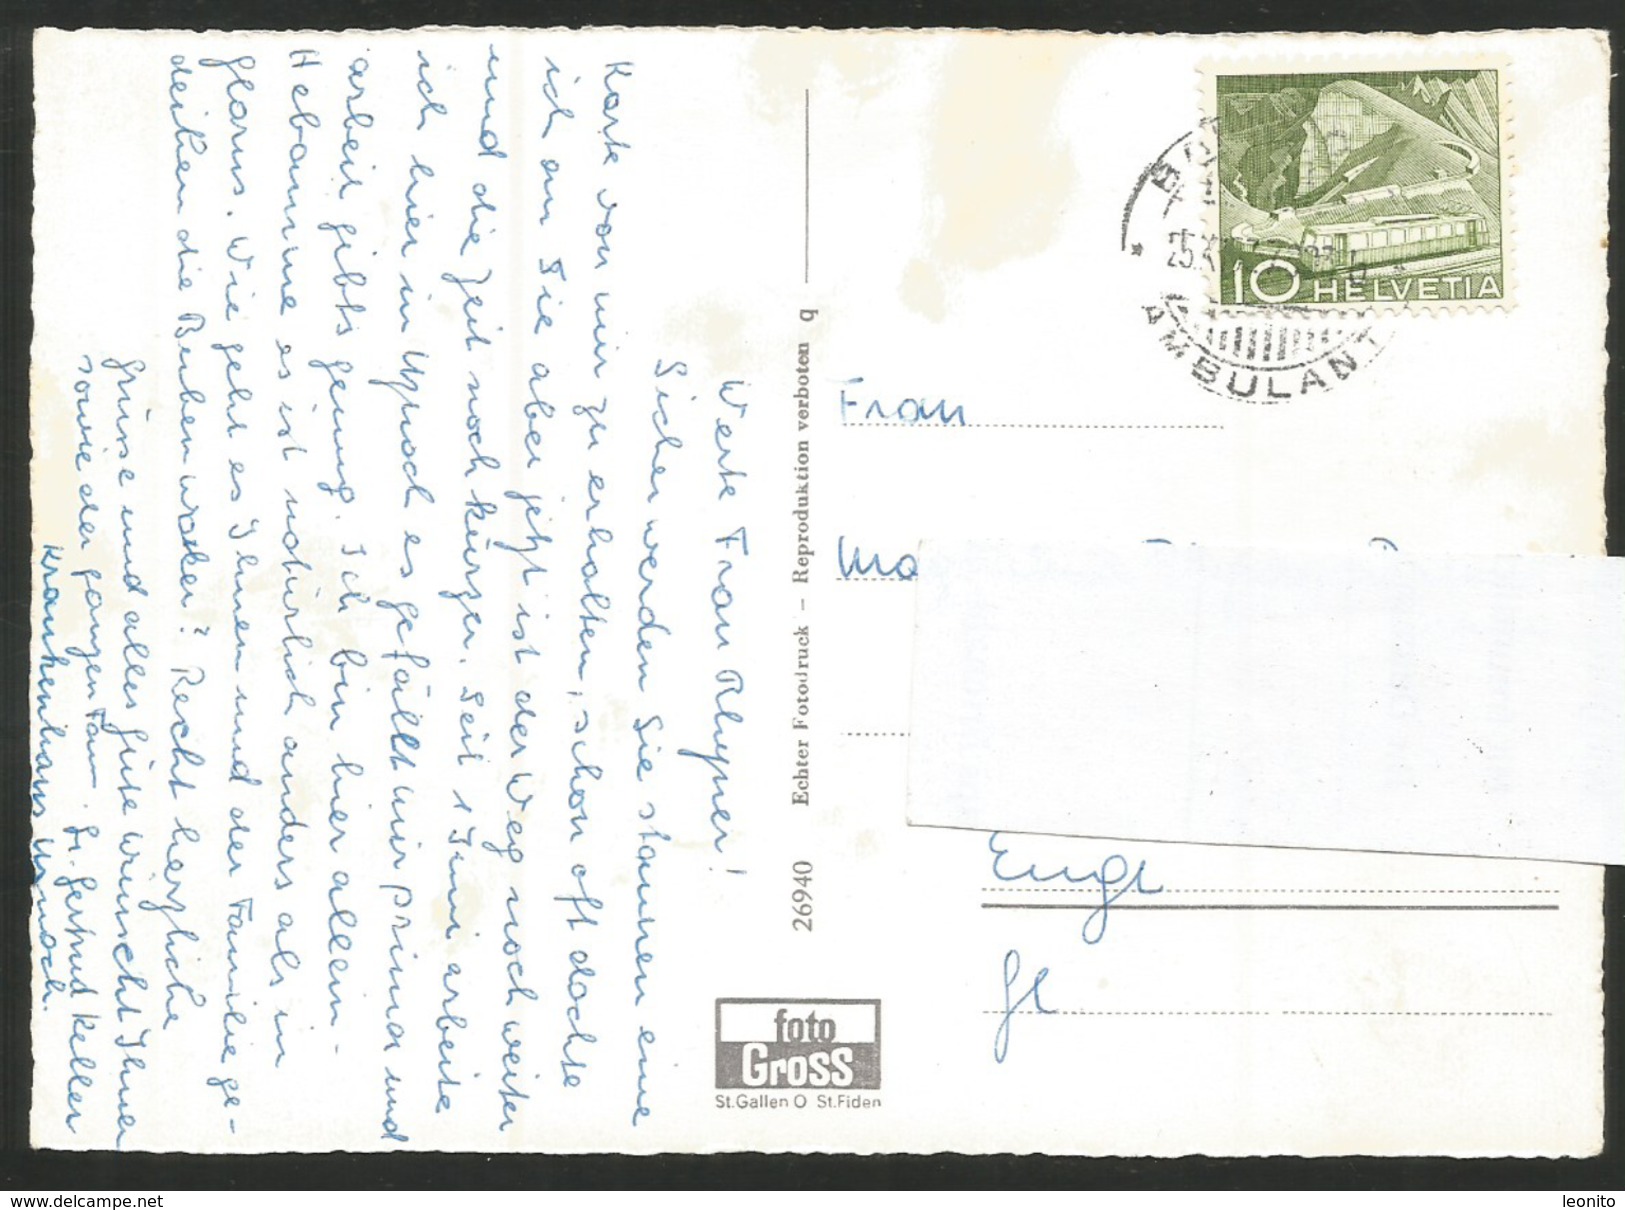 Werte Frau Rhyner!
Sicher werden Sie staunen eine
Karte von mir zu erhalten, schon oft dachte
ich an Sie aber jetzt ist der Weg noch weiter
und die Zeit noch kürzer. Seit 1 Juni arbeite
ich hier in Uznach es gefällt mir prima und
arbeit gibts genug. Ich bin hier allein-
Hebamme es ist natürlich anders als in
Glarus. Wie geht es Ihnen und der Familie ge-
deihen die Buben wacker? Recht herzliche
Grüsse und alles Gute wünscht Ihnen
sowie der ganzen Fam. Sr. Gertrud Keller
Krankenhaus Uznach.
26940 Echter Fotodruck – Reproduktion verboten q
foto
Gross
St.Gallen O St.Fiden
10 HELVETIA
25.X
AMBULANT
Frau
Engi
Gl
delcampe.net
leonito